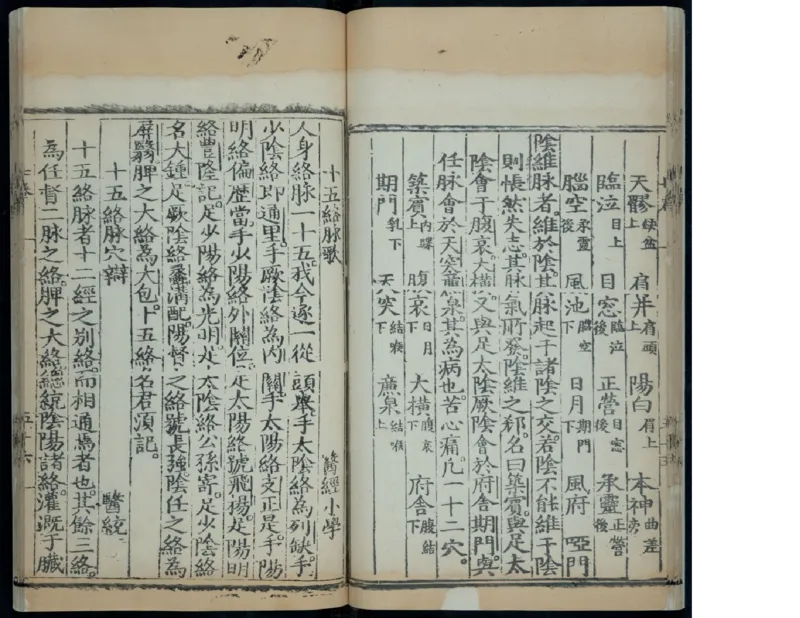 天髎缺盆上 肩井肩頭上 陽白肩上 本神曲差旁
臨泣目上 目窓臨泣後 正營目窓後 承靈正營後
腦空承靈後 風池腦空下 日月期門下 風府 啞門
陰維脉者。維於陰。其脉起于諸陰之交。若陰不能維于陰
則悵然失志。其脉氣所發。陰維之郄。名曰築賔。與足太
陰會于腹哀。大横。又與足太陰厥陰會於府舎期門。與
任脉會於天突亷泉。其為病也。苦心痛。凡一十二穴。
築賔内踝上 腹哀日月下 大横腹哀下 府舎腹結下
期門乳下 天突結喉下 亷泉結喉上
十五絡脉歌 醫經小學
人身絡脉一十五。我今逐一從頭舉。手太陰絡為列缺。手
少陰絡即通里。手厥陰絡為内關。手太陽絡支正是。手陽
明絡偏歴當。手少陽絡外關位。足太陽絡號飛揚。足陽明
絡豊隆記。足少陽絡為光明。足太陰絡公孫寄。足少陰絡
名大鍾。足厥陰絡蠡溝配。陽督之絡號長強。陰任之絡為
屏翳。脾之大絡為大包。十五絡名君須記。
十五絡脉穴辯 醫統
十五絡脉者。十二經之別絡。而相通焉者也。其餘三絡。
為任督二脉之絡。脾之大絡。總統陰陽諸絡。灌漑于臓